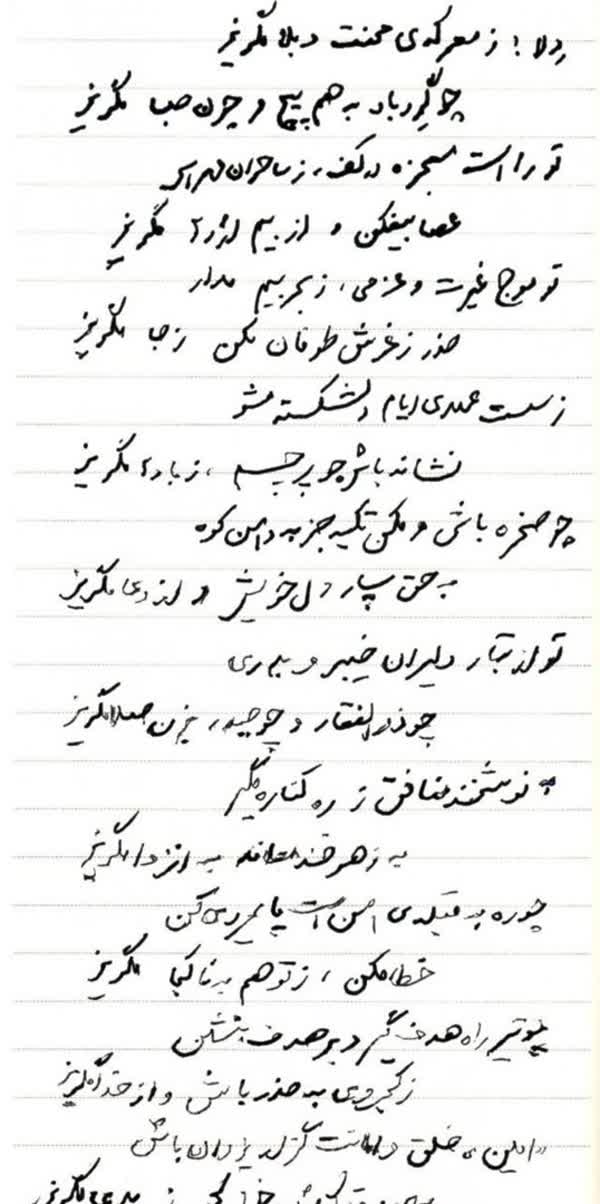 دلا! ز معرکه‌ی محنت و بلا مگریز
چو گردباد به هم پیچ و چون صبا مگریز
تو را است معجزه در کف، ز ساحران مهراس
عصا بیفکن و از بیم اژدها مگریز
تو موج غیرت و عزمی، ز بحر بیم مدار
حذر ز غرش طوفان مکن ز جا مگریز
ز سست عهدی ایام دلشکسته مشو
نشانه باش چو پرچم، ز بادها مگریز
چو صخره باش و مکن تکیه جز به دامن کوه
به حق سپار دل خویش و از دعا مگریز
تو از تبار دلیران خیبر و بدری
چو ذوالفقار و چو حیدر، بزن صلا مگریز
ز ره کناره مگیر
به زهرخند به انزوا مگریز
چو ره به قبله‌ی امن است پایمردی کن
خطا مکن، ز توهم به ناکجا مگریز
چو تیر راه هدف گیر و بر هدف بنشین
ز کجروی به حذر باش و از خدا مگریز
«امین» خلق و امانت گزار یزدان باش
مگریز